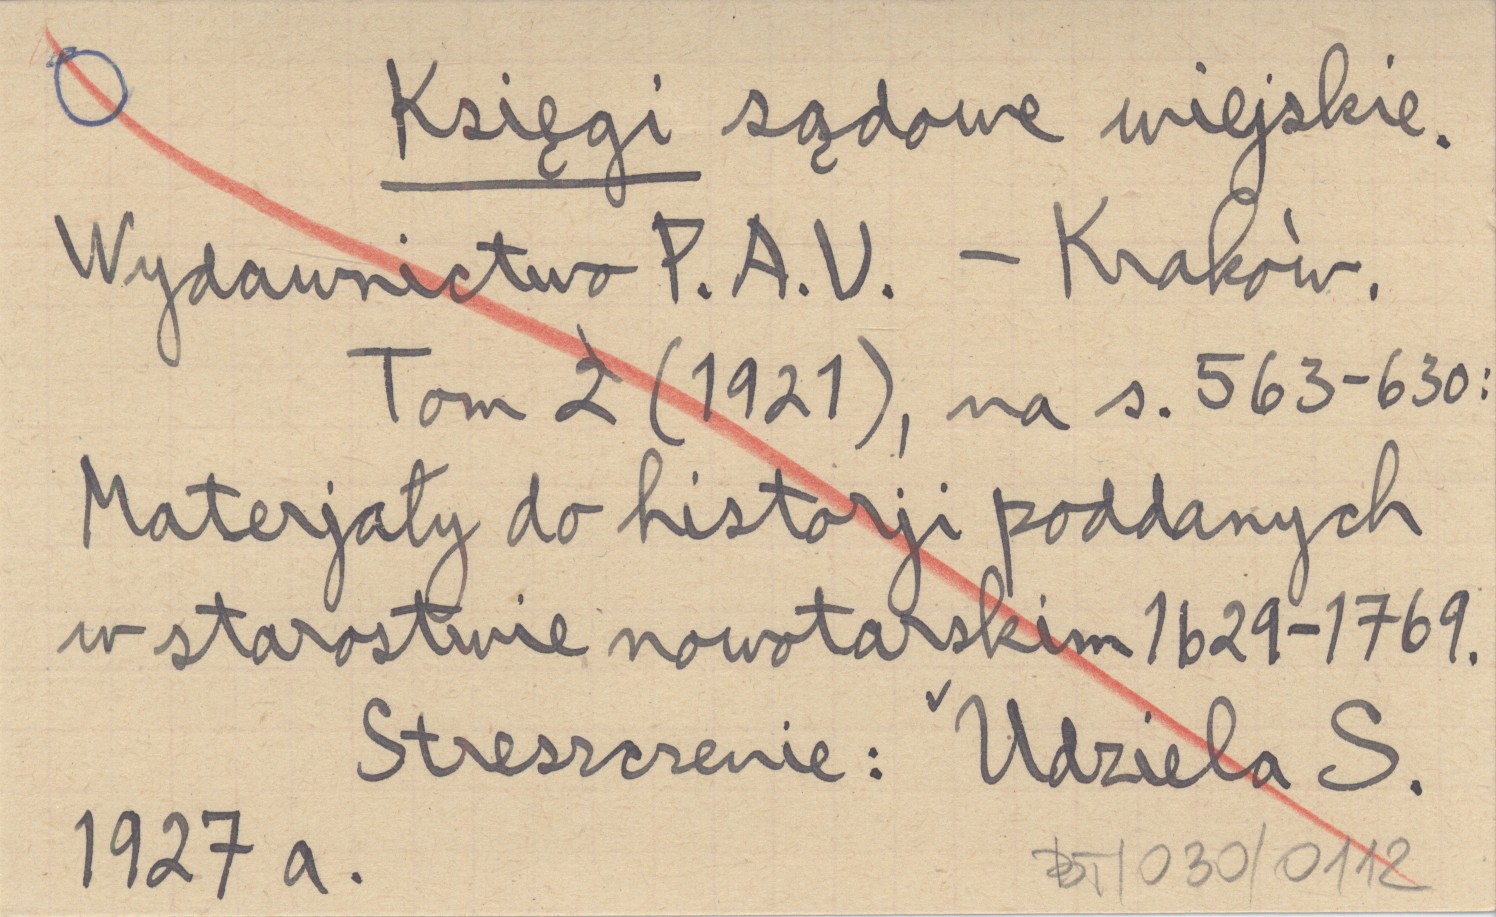 Księgi sądowe wiejskie.
Wydawnictwo P.A.U. – Kraków.
Tom 2 (1921), na s. 563-630:
Materjały do historji poddanych
w starostwie nowotarskim 1629-1769.
Streszczenie: Udziela S.
1927 a.
/030/0112